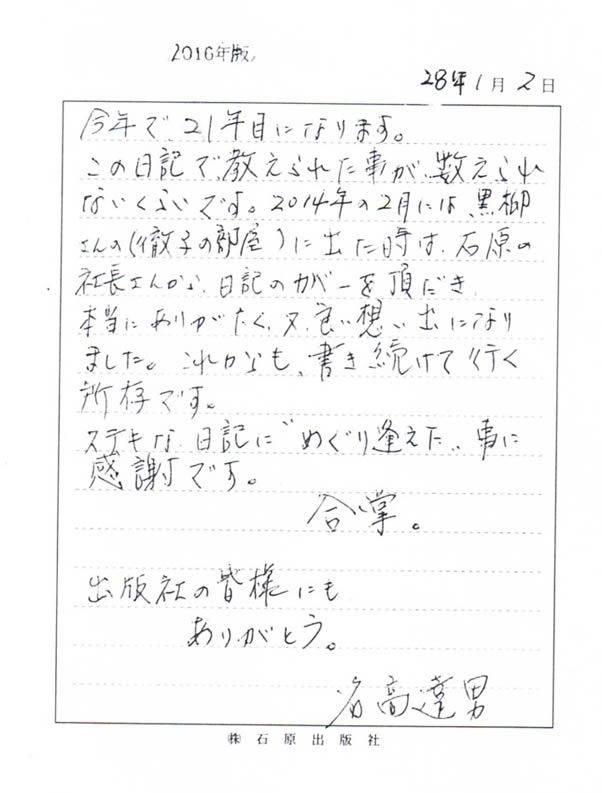 2016年版
28年1月2日
今年で、21年目になります。
この日記で、教えられた事が、数えられ
ないくらいです。2014年の2月には、黒柳
さんの(徹子の部屋)に出た時は、石原の
社長さんから、日記のカバーを頂だき、
本当にありがたく、又、良い想い出になり
ました。これからも、書き続けて行く
所存です。
ステキな、日記に〝めぐり逢えた〟事に
感謝です。
合掌。
出版社の皆様にも
ありがとう。
名高達男
㈱石原出版社